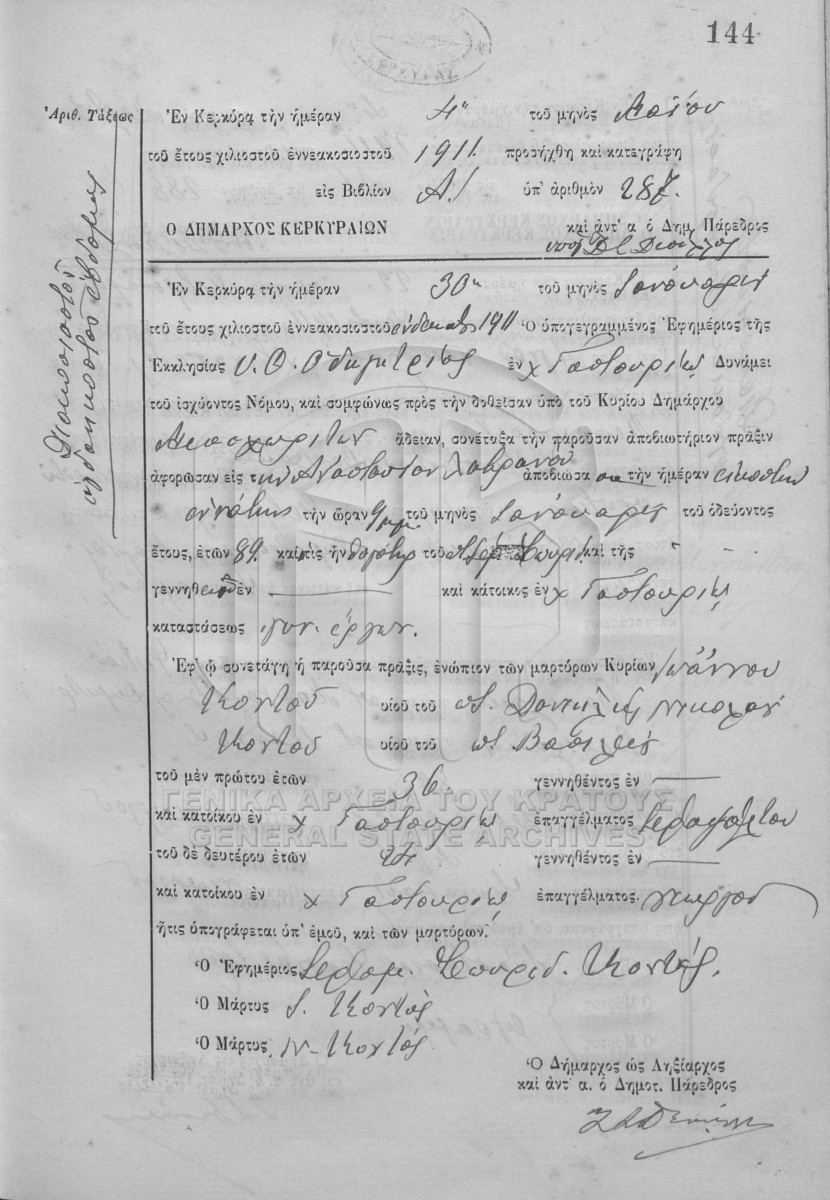 144
Ἀριθ. Τάξεως
Ἐν Κερκύρᾳ τὴν ἡμέραν 4η τοῦ μηνὸς
τοῦ ἔτους χιλιοστοῦ ἐννεακοσιοστοῦ 1911 προσήχθη καὶ κατεγράφη
εἰς Βιβλίον Α/ ὑπ' ἀριθμὸν 287.
Ο ΔΗΜΑΡΧΟΣ ΚΕΡΚΥΡΑΙΩΝ καὶ ἀντ' α ὁ Δημ. Πάρεδρος
Διακοσιοστοῦ
ὀγδοηκοστοῦ ἑβδόμης
Ἐν Κερκύρᾳ τὴν ἡμέραν 30η τοῦ μηνὸς Ιανουαρίου
τοῦ ἔτους χιλιοστοῦ ἐννεακοσιοστοῦ ἑνδεκάτου 1911 Ὁ ὑπογεγραμμένος Ἐφημέριος τῆς
Ἐκκλησίας Υ. Θ. Οδηγητρίας ἐν χ Γαστουρίῳ Δυνάμει
τοῦ ἰσχύοντος Νόμου, καὶ συμφώνως πρὸς τὴν δοθεῖσαν ὑπὸ τοῦ Κυρίου Δημάρχου
ἄδειαν, συνέταξα τὴν παροῦσαν ἀποβιωτήριον πρᾶξιν
ἀφορῶσαν εἰς τὴν Αναστασίαν ἀποβιώσασαν τὴν ἡμέραν εἰκοστὴν
ἐννάτην τὴν ὥραν 9 μ.μ. τοῦ μηνὸς Ιανουαρίου τοῦ ὁδεύοντος
ἔτους, ἐτῶν 89. καὶ τις ἦν θυγάτηρ τοῦ καὶ τῆς - -
γεννηθεῖσα ἐν — καὶ κάτοικος ἐν χ Γαστουρίῳ
καταστάσεως γυν. ἔργων.
Ἐφ' ᾧ συνετάγη ἡ παροῦσα πρᾶξις, ἐνώπιον τῶν μαρτύρων Κυρίων Ἰωάννου
Κοντοῦ υἱοῦ τοῦ Νικολάου
Κοντοῦ υἱοῦ τοῦ π. Βασιλείου
τοῦ μὲν πρώτου ἐτῶν 36. γεννηθέντος ἐν —
ΓΕΝΙΚΑ ΑΡΧΕΙΑ ΤΟΥ ΚΡΑΤΟΥΣ
καὶ κατοίκου ἐν χ Γαστουρίῳ ἐπαγγέλματος
GENERAL STATE ARCHIVES
τοῦ δὲ δευτέρου ἐτῶν γεννηθέντος ἐν —
καὶ κατοίκου ἐν χ Γαστουρίῳ ἐπαγγέλματος. γεωργοῦ
ἥτις ὑπογράφεται ὑπ' ἐμοῦ, καὶ τῶν μαρτύρων.
Ὁ Ἐφημέριος Σπυρίδ. Κοντός.
Ὁ Μάρτυς Ι. Κοντός
Ὁ Μάρτυς Ν. Κοντός
Ὁ Δήμαρχος ὡς Ληξίαρχος
καὶ ἀντ' α. ὁ Δημοτ. Πάρεδρος